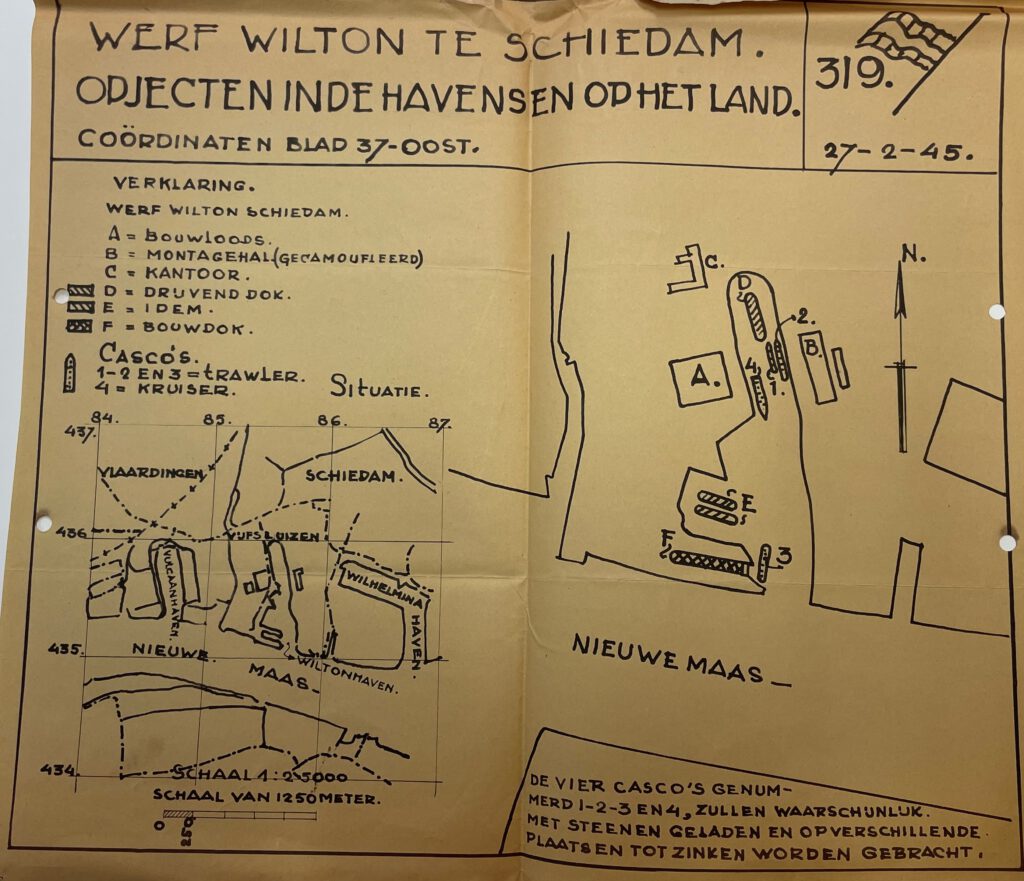 WERF WILTON TE SCHIEDAM.
OPJECTEN IN DE HAVENS EN OP HET LAND.
COÖRDINATEN BLAD 37-OOST.
319.
27-2-45.
VERKLARING.
WERF WILTON SCHIEDAM.
A = BOUWLOODS.
B = MONTAGEHAL (GECAMOUFLEERD)
C = KANTOOR.
D = DRIJVEND DOK.
E = IDEM.
F = BOUWDOK.
CASCO'S.
1-2 EN 3 = TRAWLER.
4 = KRUISER.
SITUATIE.
84. 85. 86. 87.
437.
VLAARDINGEN
SCHIEDAM.
436.
VIJFSLUIZEN
VULCAANHAVEN.
WILHELMINA
HAVEN.
435.
NIEUWE
MAAS
WILTONHAVEN.
434.
SCHAAL 1:25000
SCHAAL VAN 1250 METER.
0
250
N.
C.
D
2.
B.
A.
4
1.
E
F
3
NIEUWE MAAS
DE VIER CASCO'S GENUM-
MERD 1-2-3 EN 4, ZULLEN WAARSCHIJNLIJK.
MET STEENEN GELADEN EN OP VERSCHILLENDE
PLAATSEN TOT ZINKEN WORDEN GEBRACHT.